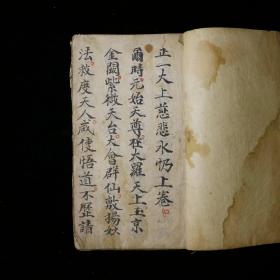 正一大上慈悲水忏上卷
爾時元始天尊在大羅天上玉京
金闕紫微天台大會群仙敷揚妙
法救度天人咸使悟道不歷諸